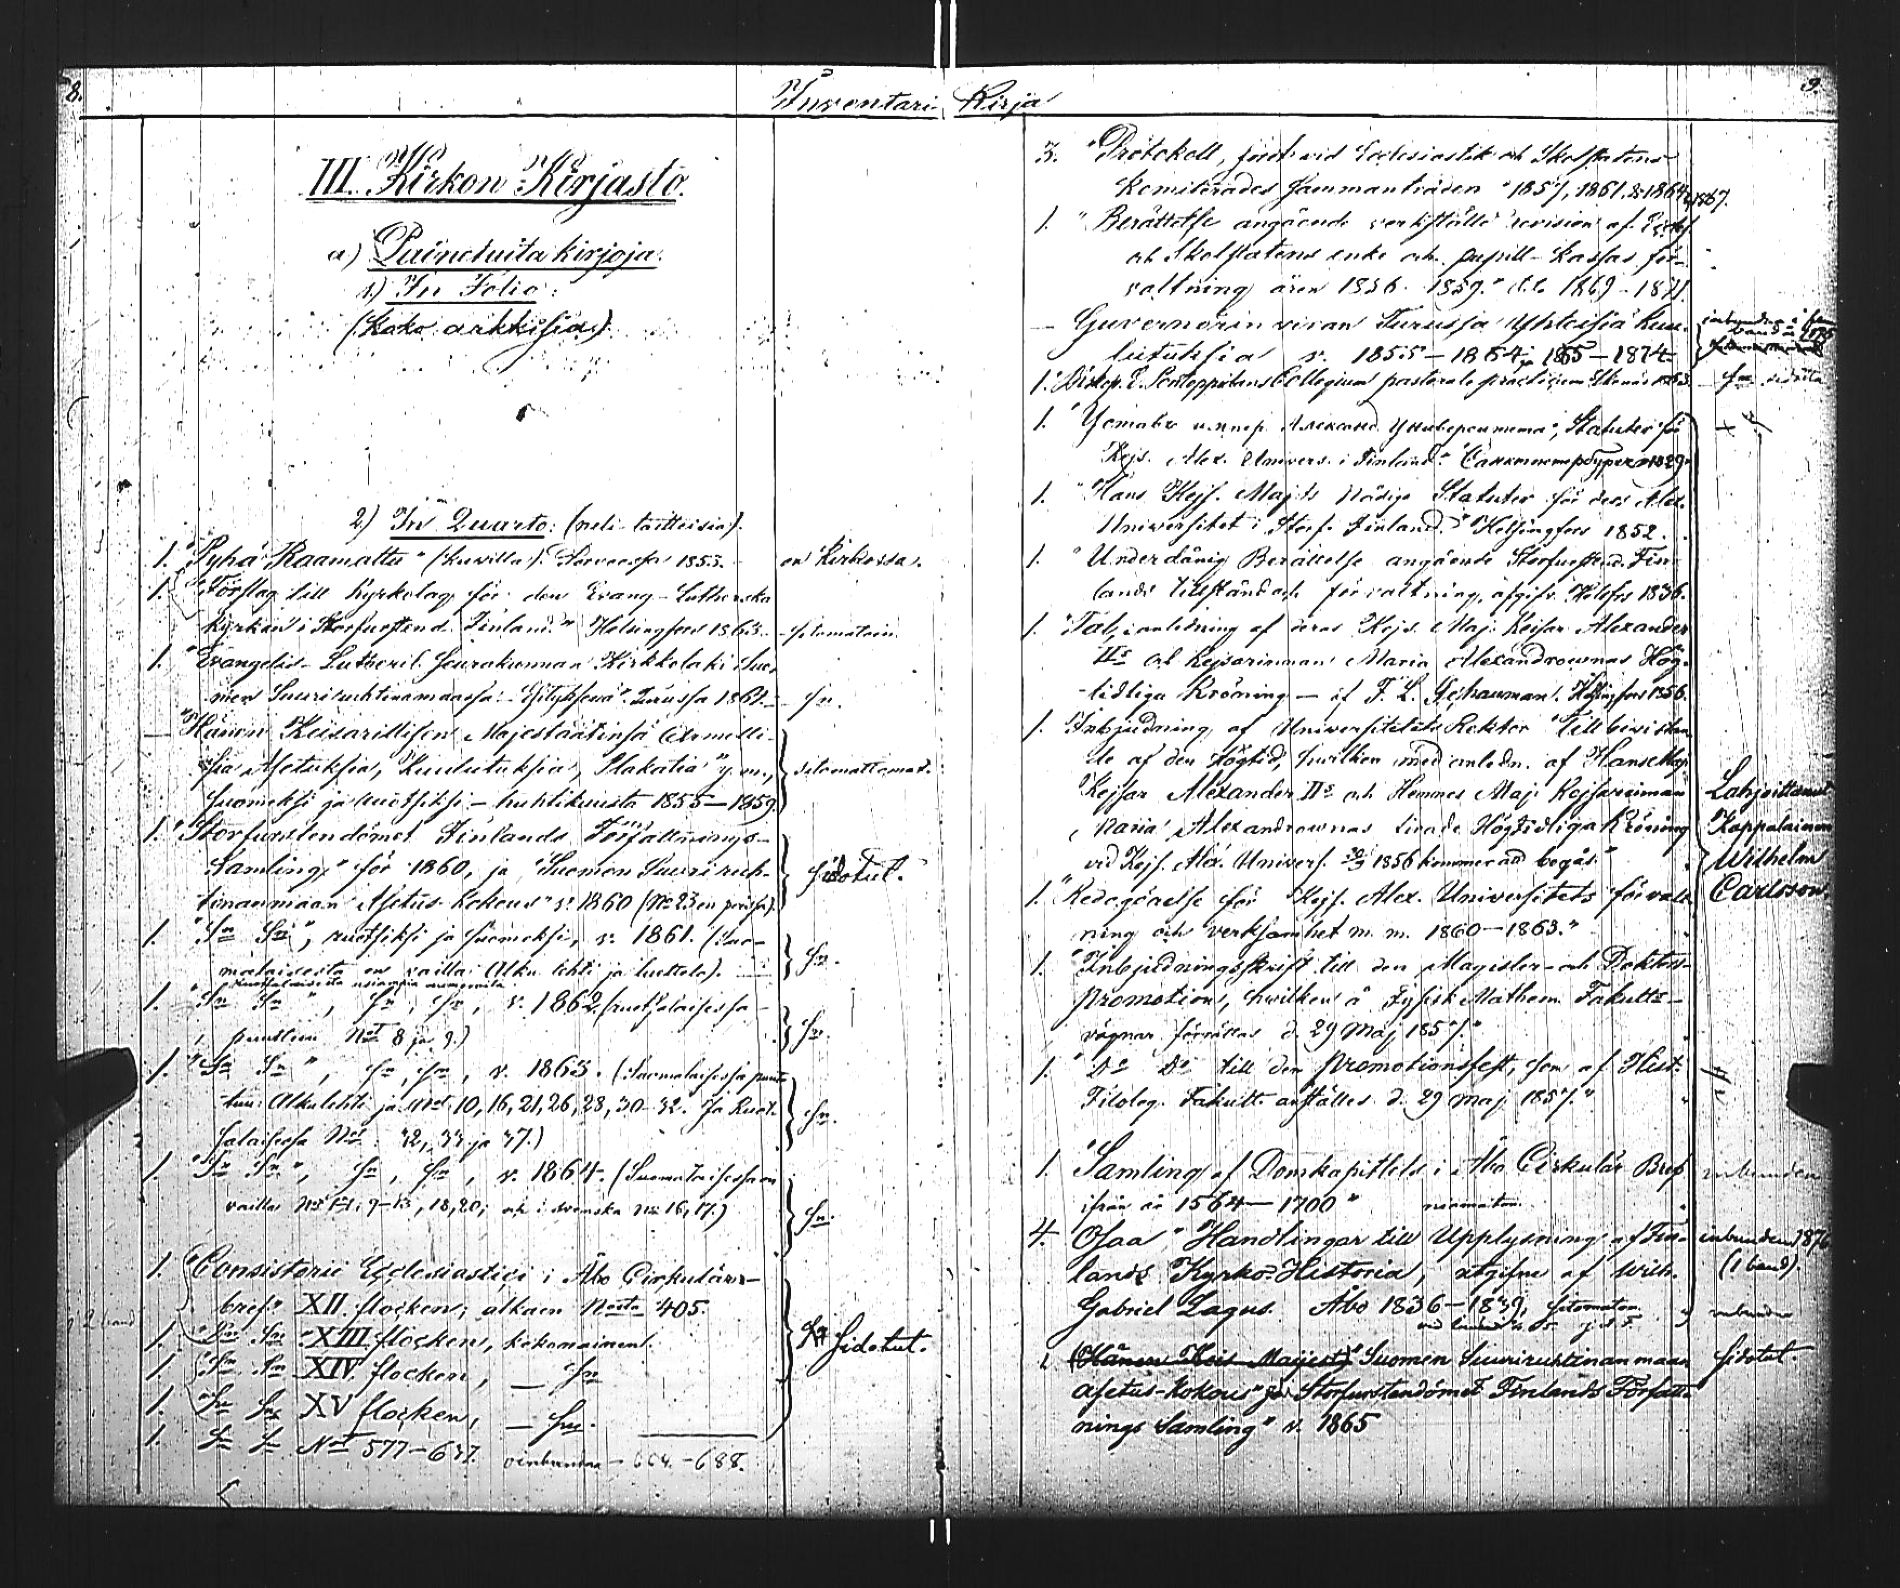 8.
Inventari Kirja
9.
III. Kirkon Kirjasto.
a) Painetuita kirjoja.
1.) In Folio:
(Koko arkkisia).
2.) In Quarto: (neli-taitteisia).
1. "Pyhä Raamattu" (kuvilla). Porvoossa 1853. on Kirkossa.
1. "Förslag till Kyrkolag för den Evang-Lutherska
kyrkan i Storfurstend. Finland." Helsingfors 1863. sitomatoin.
1. "Evangelis-Lutheril. Seurakunnan Kirkkolaki Suo-
men Suuriruhtinanmaassa. Esityksenä". Turussa 1864. Sn.
— "Hänen Keisarillisen Majestäätinsä Armolli-
sia Asetuksia, Kuulutuksia, Plakatia" y.m.,
Suomeksi ja ruotsiksi – huhtikuusta 1855–1859. sitomattomat.
1. "Storfurstendömet Finlands Författnings-
Samling" för 1860, ja "Suomen Suuriruh-
tinanmaan Asetus-Kokous" v. 1860 (No 23 en puuttu). sidotut.
1. "Sn Sn", ruotsiksi ja suomeksi, v. 1861. (Suo-
malaisesta on vailla: Alku lehti ja luettelo). Sn.
1. "Sn Sn", Sn, Sn, v. 1862. (ruotsalaisessa
puuttuu Not 8 ja 9.) Sn.
1. "Sn Sn", Sn, Sn, v. 1863. (Suomalaisessa puut-
tuu: Alkulehti ja Not 10, 16, 21, 26, 28, 30–32. Ja Ruot-
salaisessa Not: 32, 33 ja 37.) Sn.
1. "Sn Sn", Sn, Sn, v. 1864. (Suomalaisessa on
vailla No 1–4, 9–13, 18, 20; och i svenska No 16, 17.) Sn.
1. "Consistorii Ecclesiastici i Åbo Cirkulärs-
bref" XII flocken; alkaen Nosta 405.
1. "Sn Sn" XIII flocken, kokonainen.
1. Sn Sn XIV flocken, — Sn
1. Sn Sn XV flocken, — Sn.
1. Sn Sn Not 577–637. oinbundna – 604.–688.
sidotut.
3. "Protokoll, fördt vid Ecclesiastik och Skolstatens
Komiterades Sammanträden" 1857, 1861, & 1864, 1867.
1. "Berättelse angående verkställd revision af Eccles.
och Skolstatens enke och pupill-kassas för-
valtning åren 1856–1859." d:o 1869–1871
— Guvernörin viran Turussa Yhteisiä Kuu-
lutuksia v. 1855–1864, ja 1865–1874
1. Biskop E. Pontoppidans Collegium pastorale practicum
1. "Уставъ импер. Александ. Университета", "Statuter för
Kejs. Alex. Univers. i Finland." Санктпетербургъ 1829.
1. "Hans Kejs. Maj:ts Nådiga Statuter för dess Alex.
Universitet i Storf. Finland." Helsingfors 1852.
1. "Underdånig Berättelse angående Storfurstend. Fin-
lands tillstånd och förvaltning, afgifv. Helsfrs 1836.
1. "Tal, i anledning af deras Kejs. Maj. Kejsar Alexander
II:s och Kejsarinnan Maria Alexandrownas Hög-
tidliga Kröning — af F. L. Schauman. Helsingfors 1856.
1. "Inbjudning af Universitetets Rektor till bevistan-
de af den Högtid, hvilken med anledn. af Hans Maj.
Kejsar Alexander II:s och Hennes Maj. Kejsarinnan
Maria Alexandrownas timade Högtidliga Kröning
vid Kejs. Alex. Univers. 1856 kommer att begås."
1. "Redogörelse för Kejs. Alex. Universitets förvalt-
ning och verksamhet m. m. 1860–1863."
1. "Inbjudningsskrift till den Magister- och Doktors-
promotion, hvilken å Fysisk Mathem. Fakultets
vägnar förrättas d. 29 Maj 1857."
1. "D:o D:o till den Promotionsfest, som af Hist.
Filolog. Fakult. anställes d. 29 maj 1857."
Lahjoittanut
Kappalainen
Wilhelm
Carlsson.
1. "Samling af Domkapitlets i Åbo Cirkulär Bref
ifrån år 1564–1700" inbunden
4. Osaa "Handlingar till Upplysning af Fin- inbunden 1876
lands Kyrko-Historia, utgifne af Wilh. (1 band).
Gabriel Lagus. Åbo 1836–1839, sitomaton. inbunden
1. (Hänen Keis. Majest.) "Suomen Suuriruhtinanmaan sidotut.
asetus-kokous" ja "Storfurstendömet Finlands Författ-
nings Samling" v. 1865